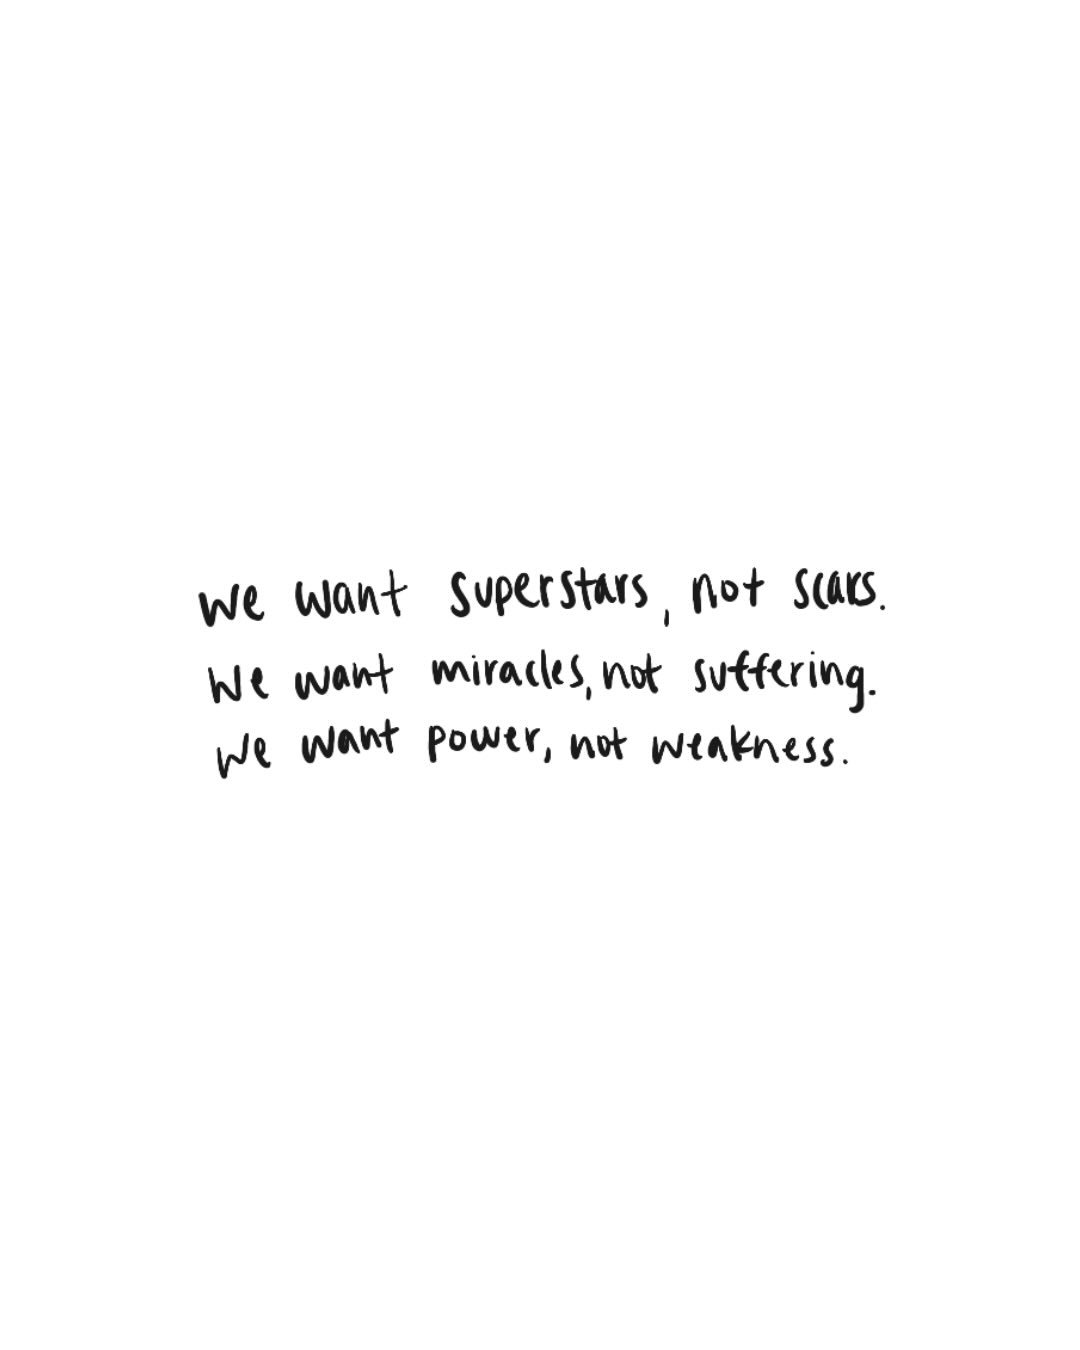 We want superstars, not scars.
We want miracles, not suffering.
We want power, not weakness.